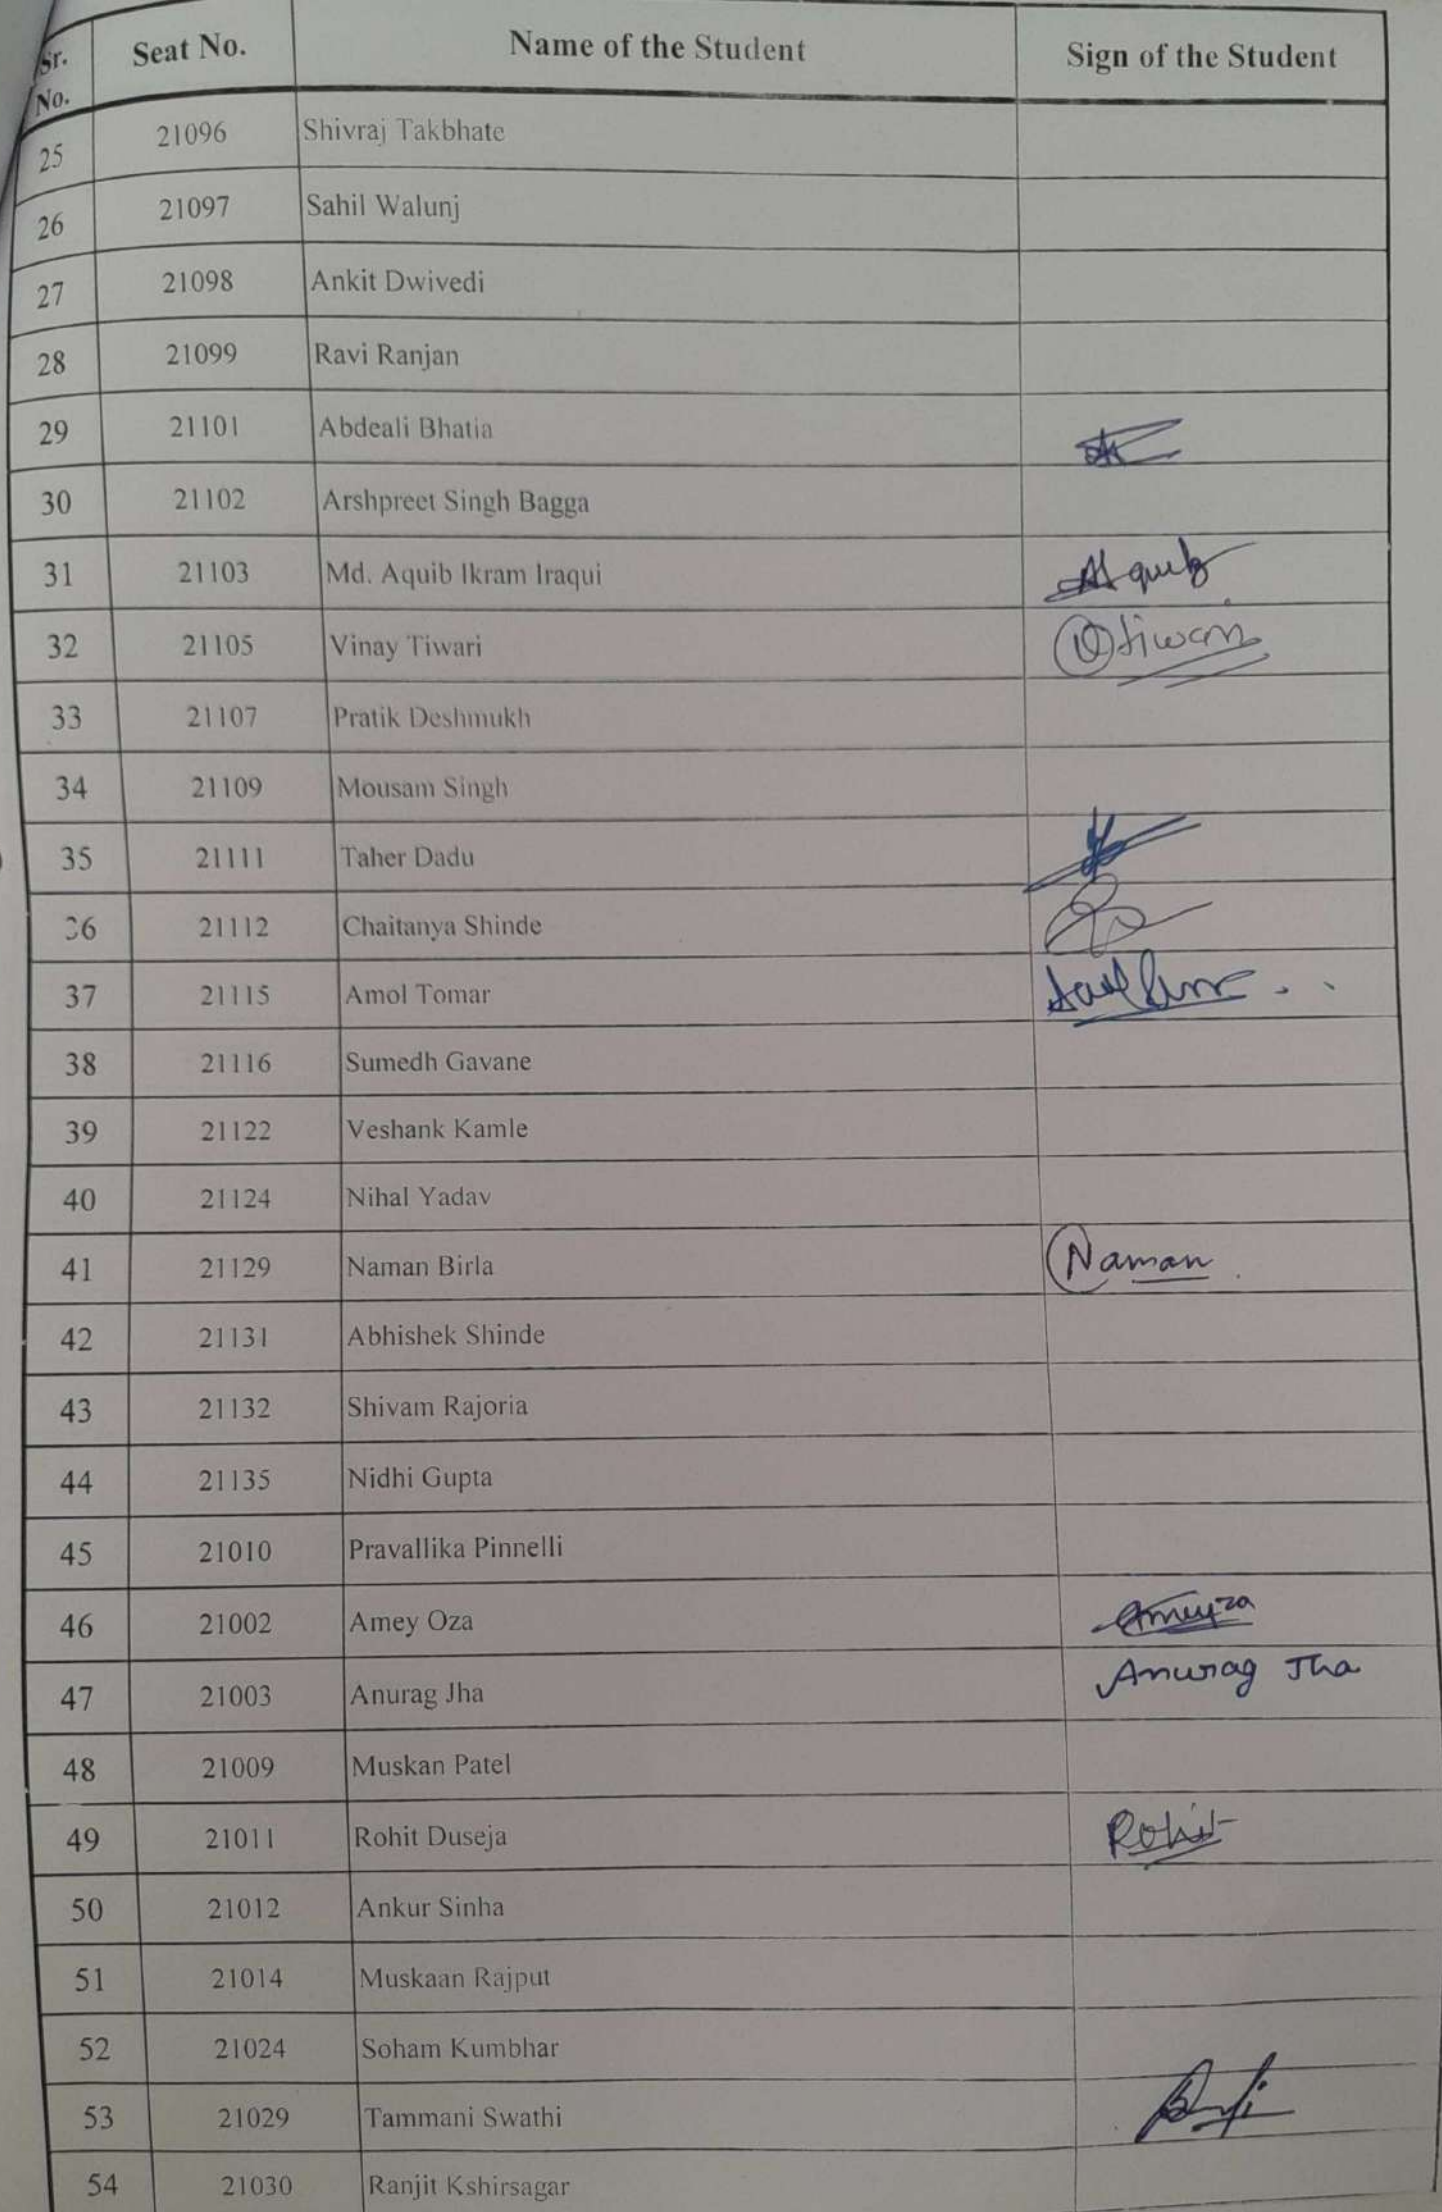 Sr. No. Seat No. Name of the Student Sign of the Student
25 21096 Shivraj Takbhate
26 21097 Sahil Walunj
27 21098 Ankit Dwivedi
28 21099 Ravi Ranjan
29 21101 Abdeali Bhatia
30 21102 Arshpreet Singh Bagga
31 21103 Md. Aquib Ikram Iraqui Aquib
32 21105 Vinay Tiwari Tiwari
33 21107 Pratik Deshmukh
34 21109 Mousam Singh
35 21111 Taher Dadu
36 21112 Chaitanya Shinde
37 21115 Amol Tomar
38 21116 Sumedh Gavane
39 21122 Veshank Kamle
40 21124 Nihal Yadav
41 21129 Naman Birla Naman
42 21131 Abhishek Shinde
43 21132 Shivam Rajoria
44 21135 Nidhi Gupta
45 21010 Pravallika Pinnelli
46 21002 Amey Oza
47 21003 Anurag Jha Anurag Jha
48 21009 Muskan Patel
49 21011 Rohit Duseja Rohit
50 21012 Ankur Sinha
51 21014 Muskaan Rajput
52 21024 Soham Kumbhar
53 21029 Tammani Swathi
54 21030 Ranjit Kshirsagar